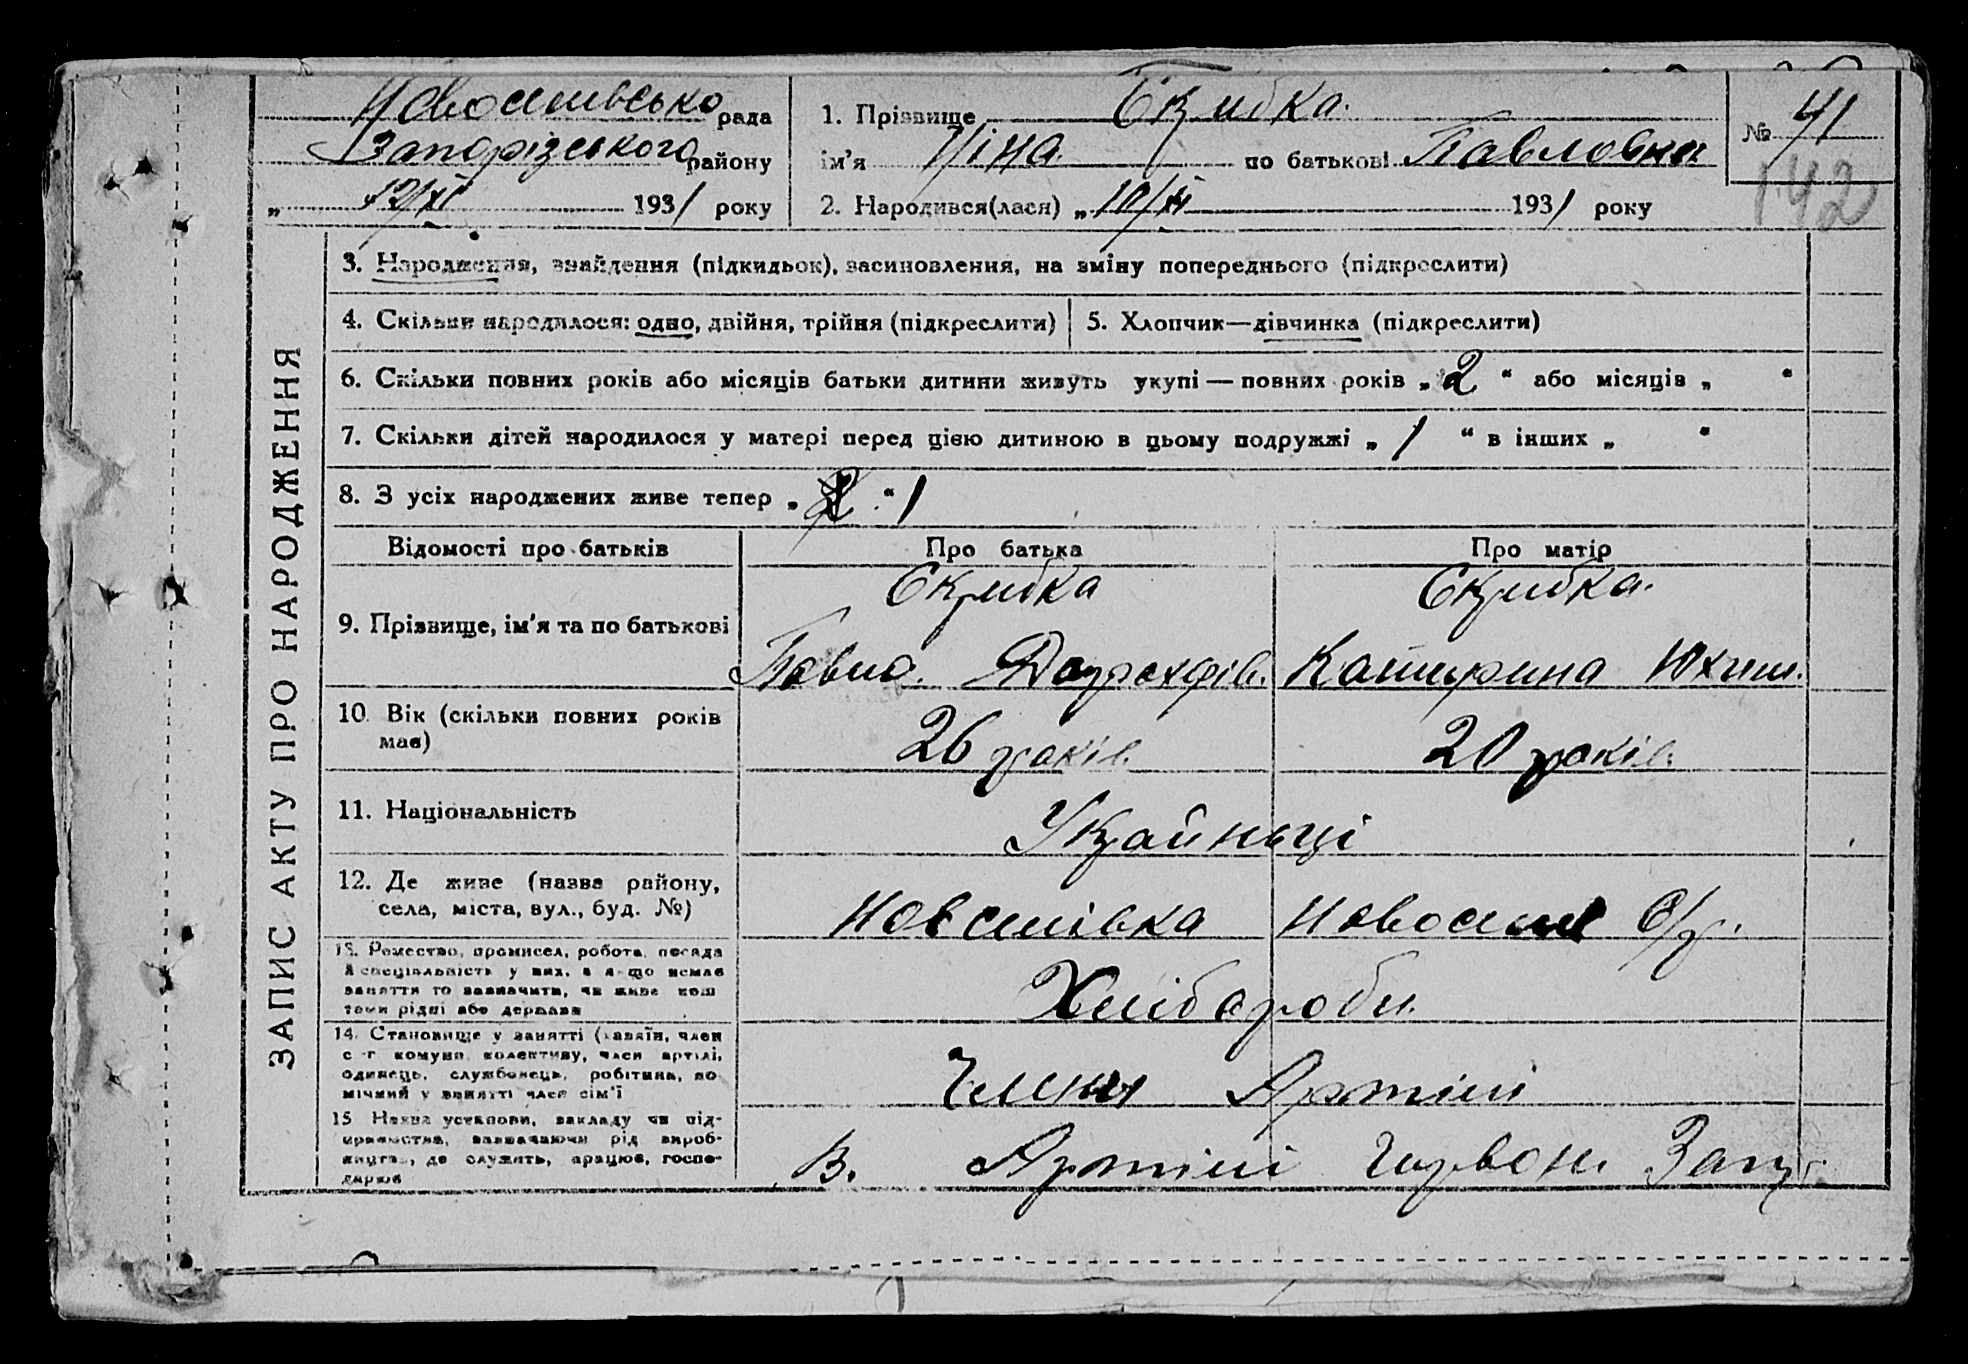 Новоселівсько рада
Запорізського району
„ 12/XI 1931 року
1. Прізвище Скрибка.
ім'я Ніна. по батькові Павловна
2. Народився(лася) „ 10/XI 1931 року
№ 41
142
ЗАПИС АКТУ ПРО НАРОДЖЕННЯ
3. Народження, знайдення (підкидьок), засиновлення, на зміну попереднього (підкреслити)
4. Скільки народилося: одно, двійня, трійня (підкреслити)
5. Хлопчик—дівчинка (підкреслити)
6. Скільки повних років або місяців батьки дитини живуть укупі — повних років „ 2 “ або місяців „ “
7. Скільки дітей народилося у матері перед цією дитиною в цьому подружжі „ 1 “ в інших „ “
8. З усіх народжених живе тепер „ 2 “ 1
Відомості про батьків
Про батька
Про матір
9. Прізвище, ім'я та по батькові
Скрибка
Павло.
Скрибка.
Катирина Юхим.
10. Вік (скільки повних років
має)
26 років.
20 років.
11. Національність
Украйньці
12. Де живе (назва району,
села, міста, вул., буд. №)
Новселівка
Новосел с/р.
13. Ремество, промисел, робота, посада
й спеціяльність у них, а якщо немає
заняття то зазначити, чи живе кош
тами рідні або держави
Хлібороби.
14. Становище у занятті (хазяїн, член
с-г комуни, колективу, член артілі,
одинець, службовець, робітник, по
мічний у занятті член сім'ї
Члени Артілі
15 Назва установи, закладу чи під-
приємства, зазначаючи рід вироб-
ництва, де служить, працює, госпо-
дарює
В. Артілі Червон. Запр.